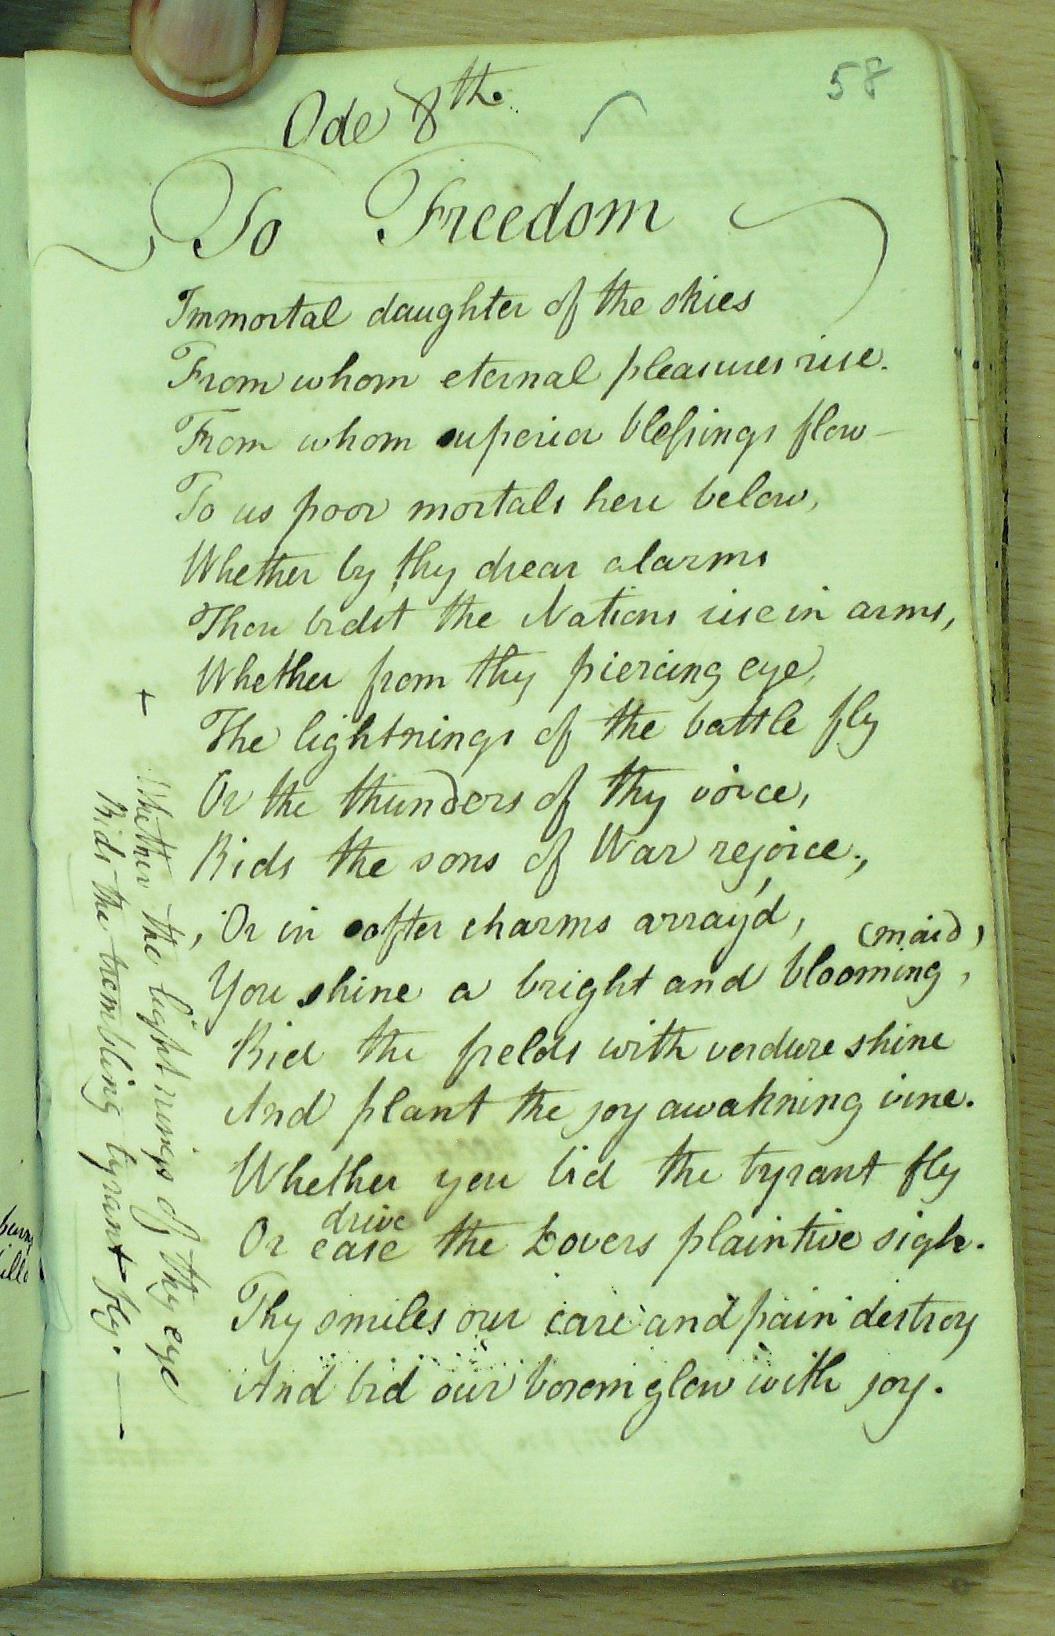 58
Ode 8th.
To Freedom
Immortal daughter of the skies
From whom eternal pleasures rise.
From whom superior bleſsings flow –
To us poor mortals here below,
Whether by thy drear alarms
Thou bidst the Nations rise in arms,
Whether from thy piercing eye,
+
The lightnings of the battle fly
Or the thunders of thy voice,
Bids the sons of War rejoice.,
, Or in softer charms array'd,
(maid)
You shine a bright and blooming,
Bid the fields with verdure shine
And plant the joy awakning vine.
Whether you bid the tyrant fly
drive
Or ease the Lovers plaintive sigh.
Thy smiles our care and pain destroy
And bid our bosom glow with joy.
Whether the lightnings of thy eye
Bids the trembling tyrant fly. —